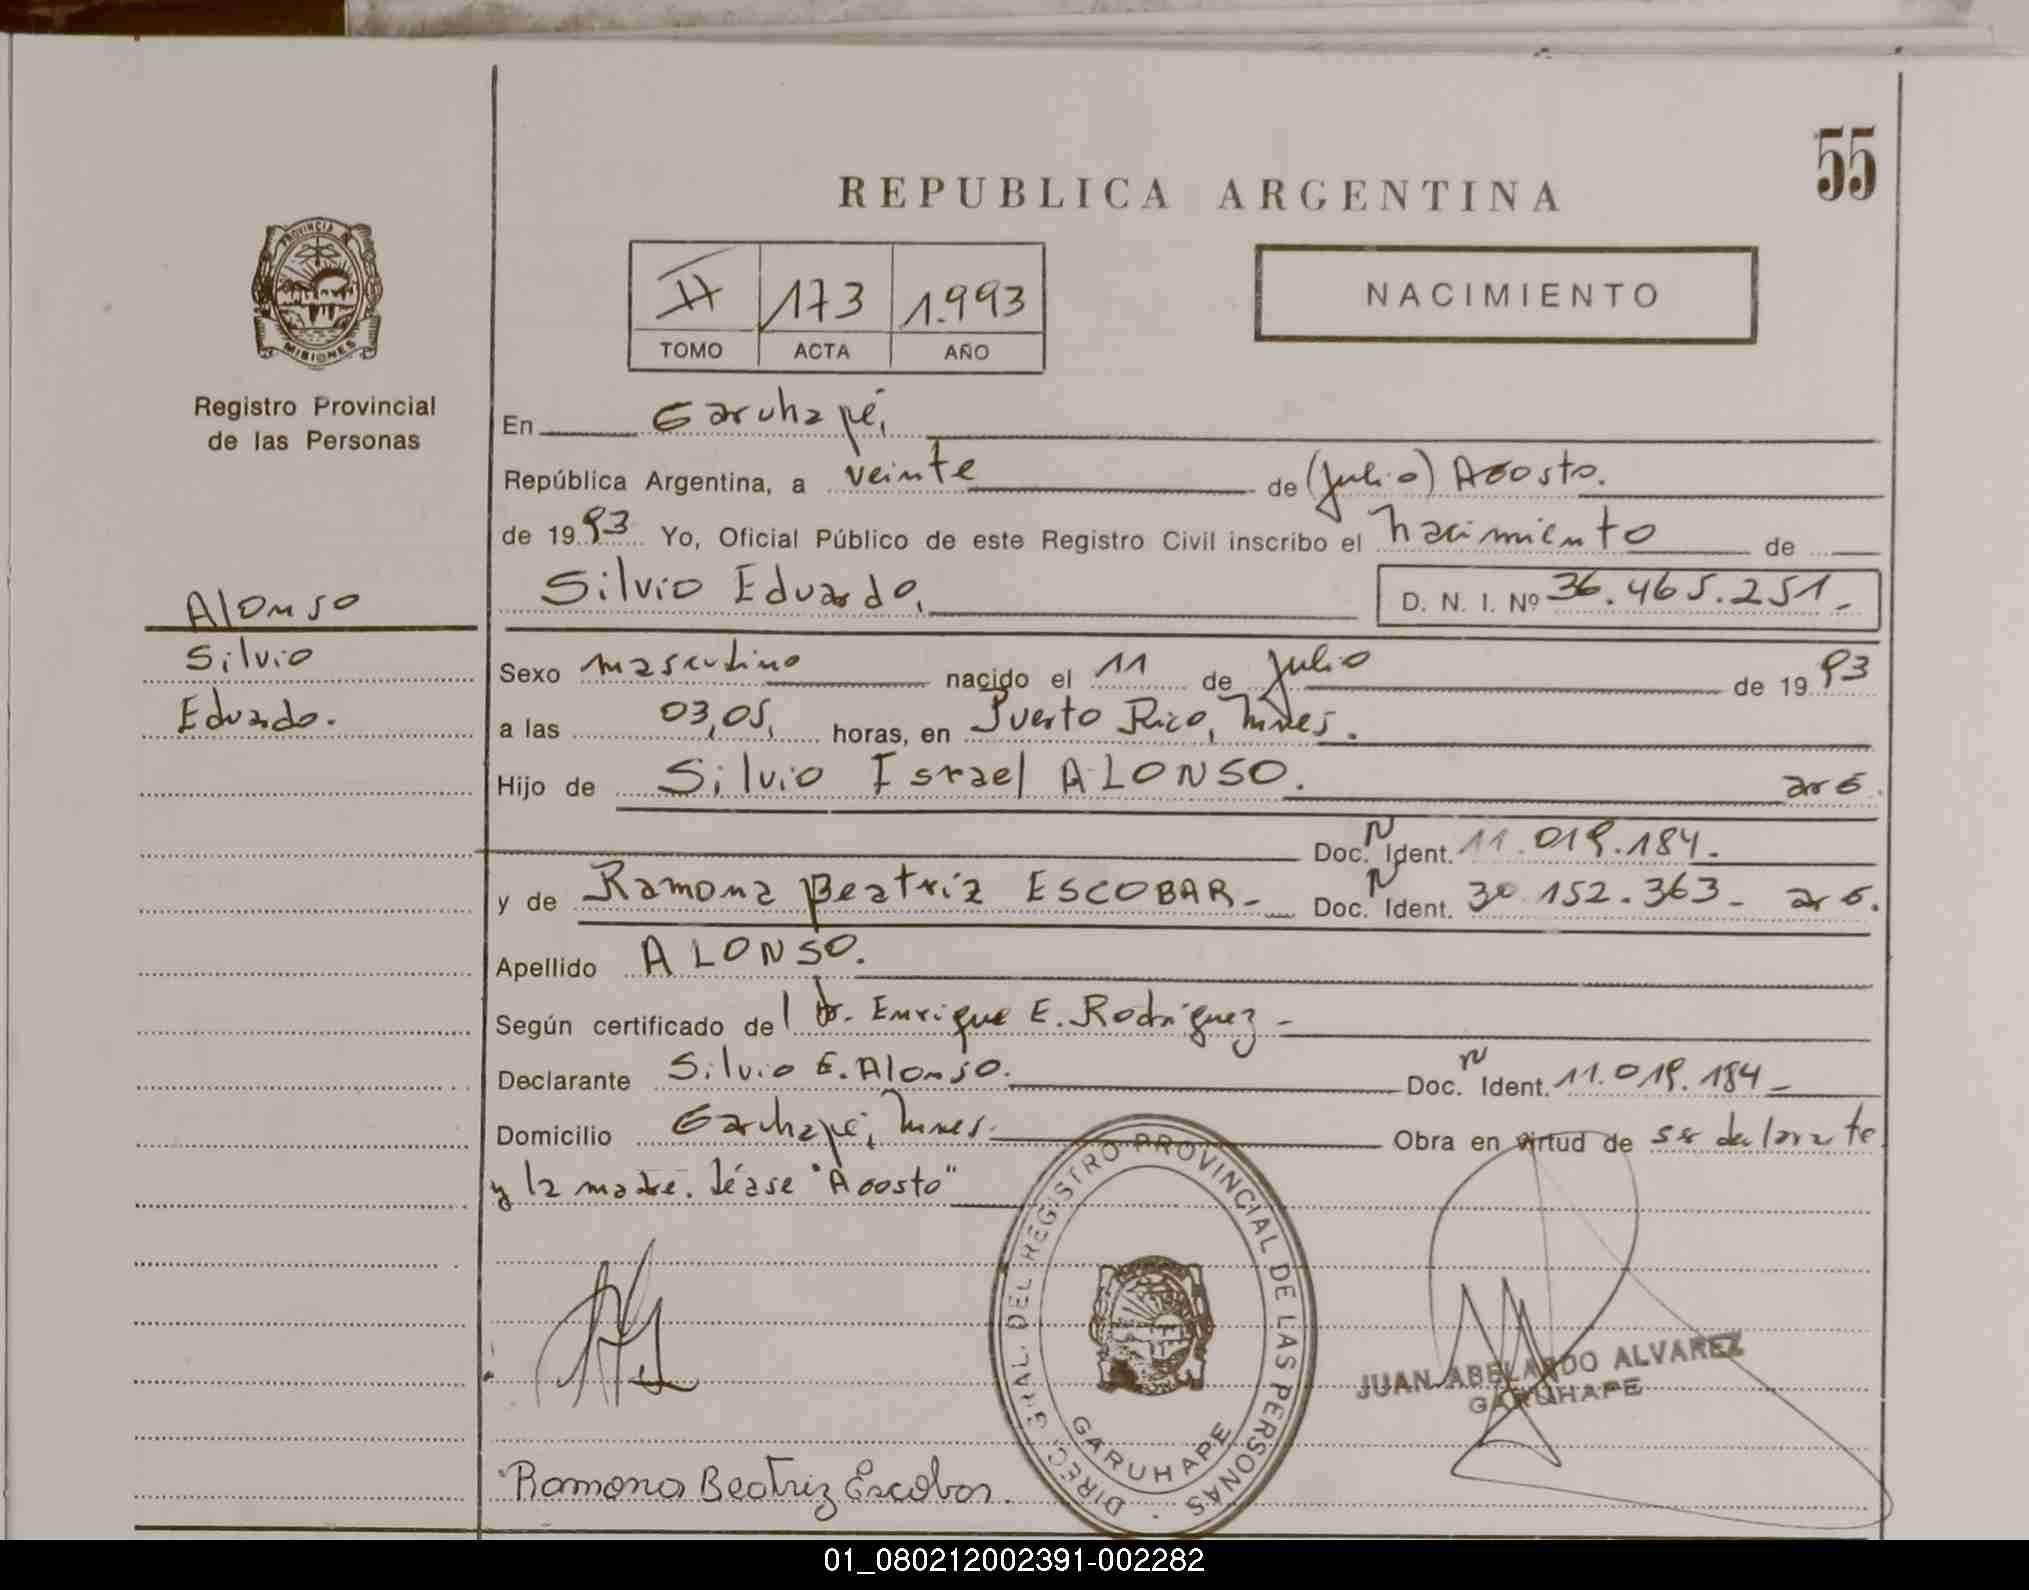 55
REPUBLICA ARGENTINA
PROVINCIA DE
MISIONES
II 173 1.993
TOMO ACTA AÑO
NACIMIENTO
Registro Provincial
de las Personas
En Garuhapé,
República Argentina, a veinte de (Julio) Agosto.
de 1993 Yo, Oficial Público de este Registro Civil inscribo el nacimiento de
Silvio Eduardo, D. N. I. Nº 36.465.251.-
Alonso
Silvio
Eduardo.
Sexo masculino nacido el 11 de Julio de 1993
a las 03,05, horas, en Puerto Rico, Mnes.
Hijo de Silvio Israel ALONSO. arg.
Doc. N Ident. 11.019.184.
y de Ramona Beatriz ESCOBAR- Doc. N Ident. 30.152.363- arg.
Apellido ALONSO.
Según certificado del Dr. Enrique E. Rodríguez-
Declarante Silvio E. Alonso. Doc. N Ident. 11.019.184-
Domicilio Garuhapé, Mnes. Obra en virtud de ser declarante
y la madre. Léase "Agosto"
DIREC. GRAL. DEL REGISTRO PROVINCIAL DE LAS PERSONAS
GARUHAPE
JUAN ABELARDO ALVAREZ
GARUHAPE
Ramona Beatriz Escobar.
01_080212002391-002282